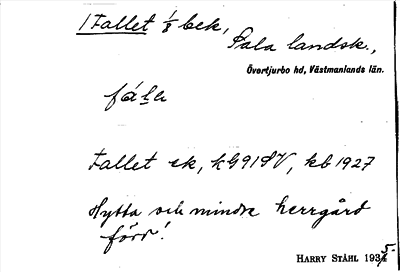 1 Fallet 1/8 bek,
Sala landsk.,
Övertjurbo hd, Västmanlands län.
Fallet ek, kG91SV, kb 1927
Hytta och mindre herrgård
förr!
HARRY STÅHL 1935